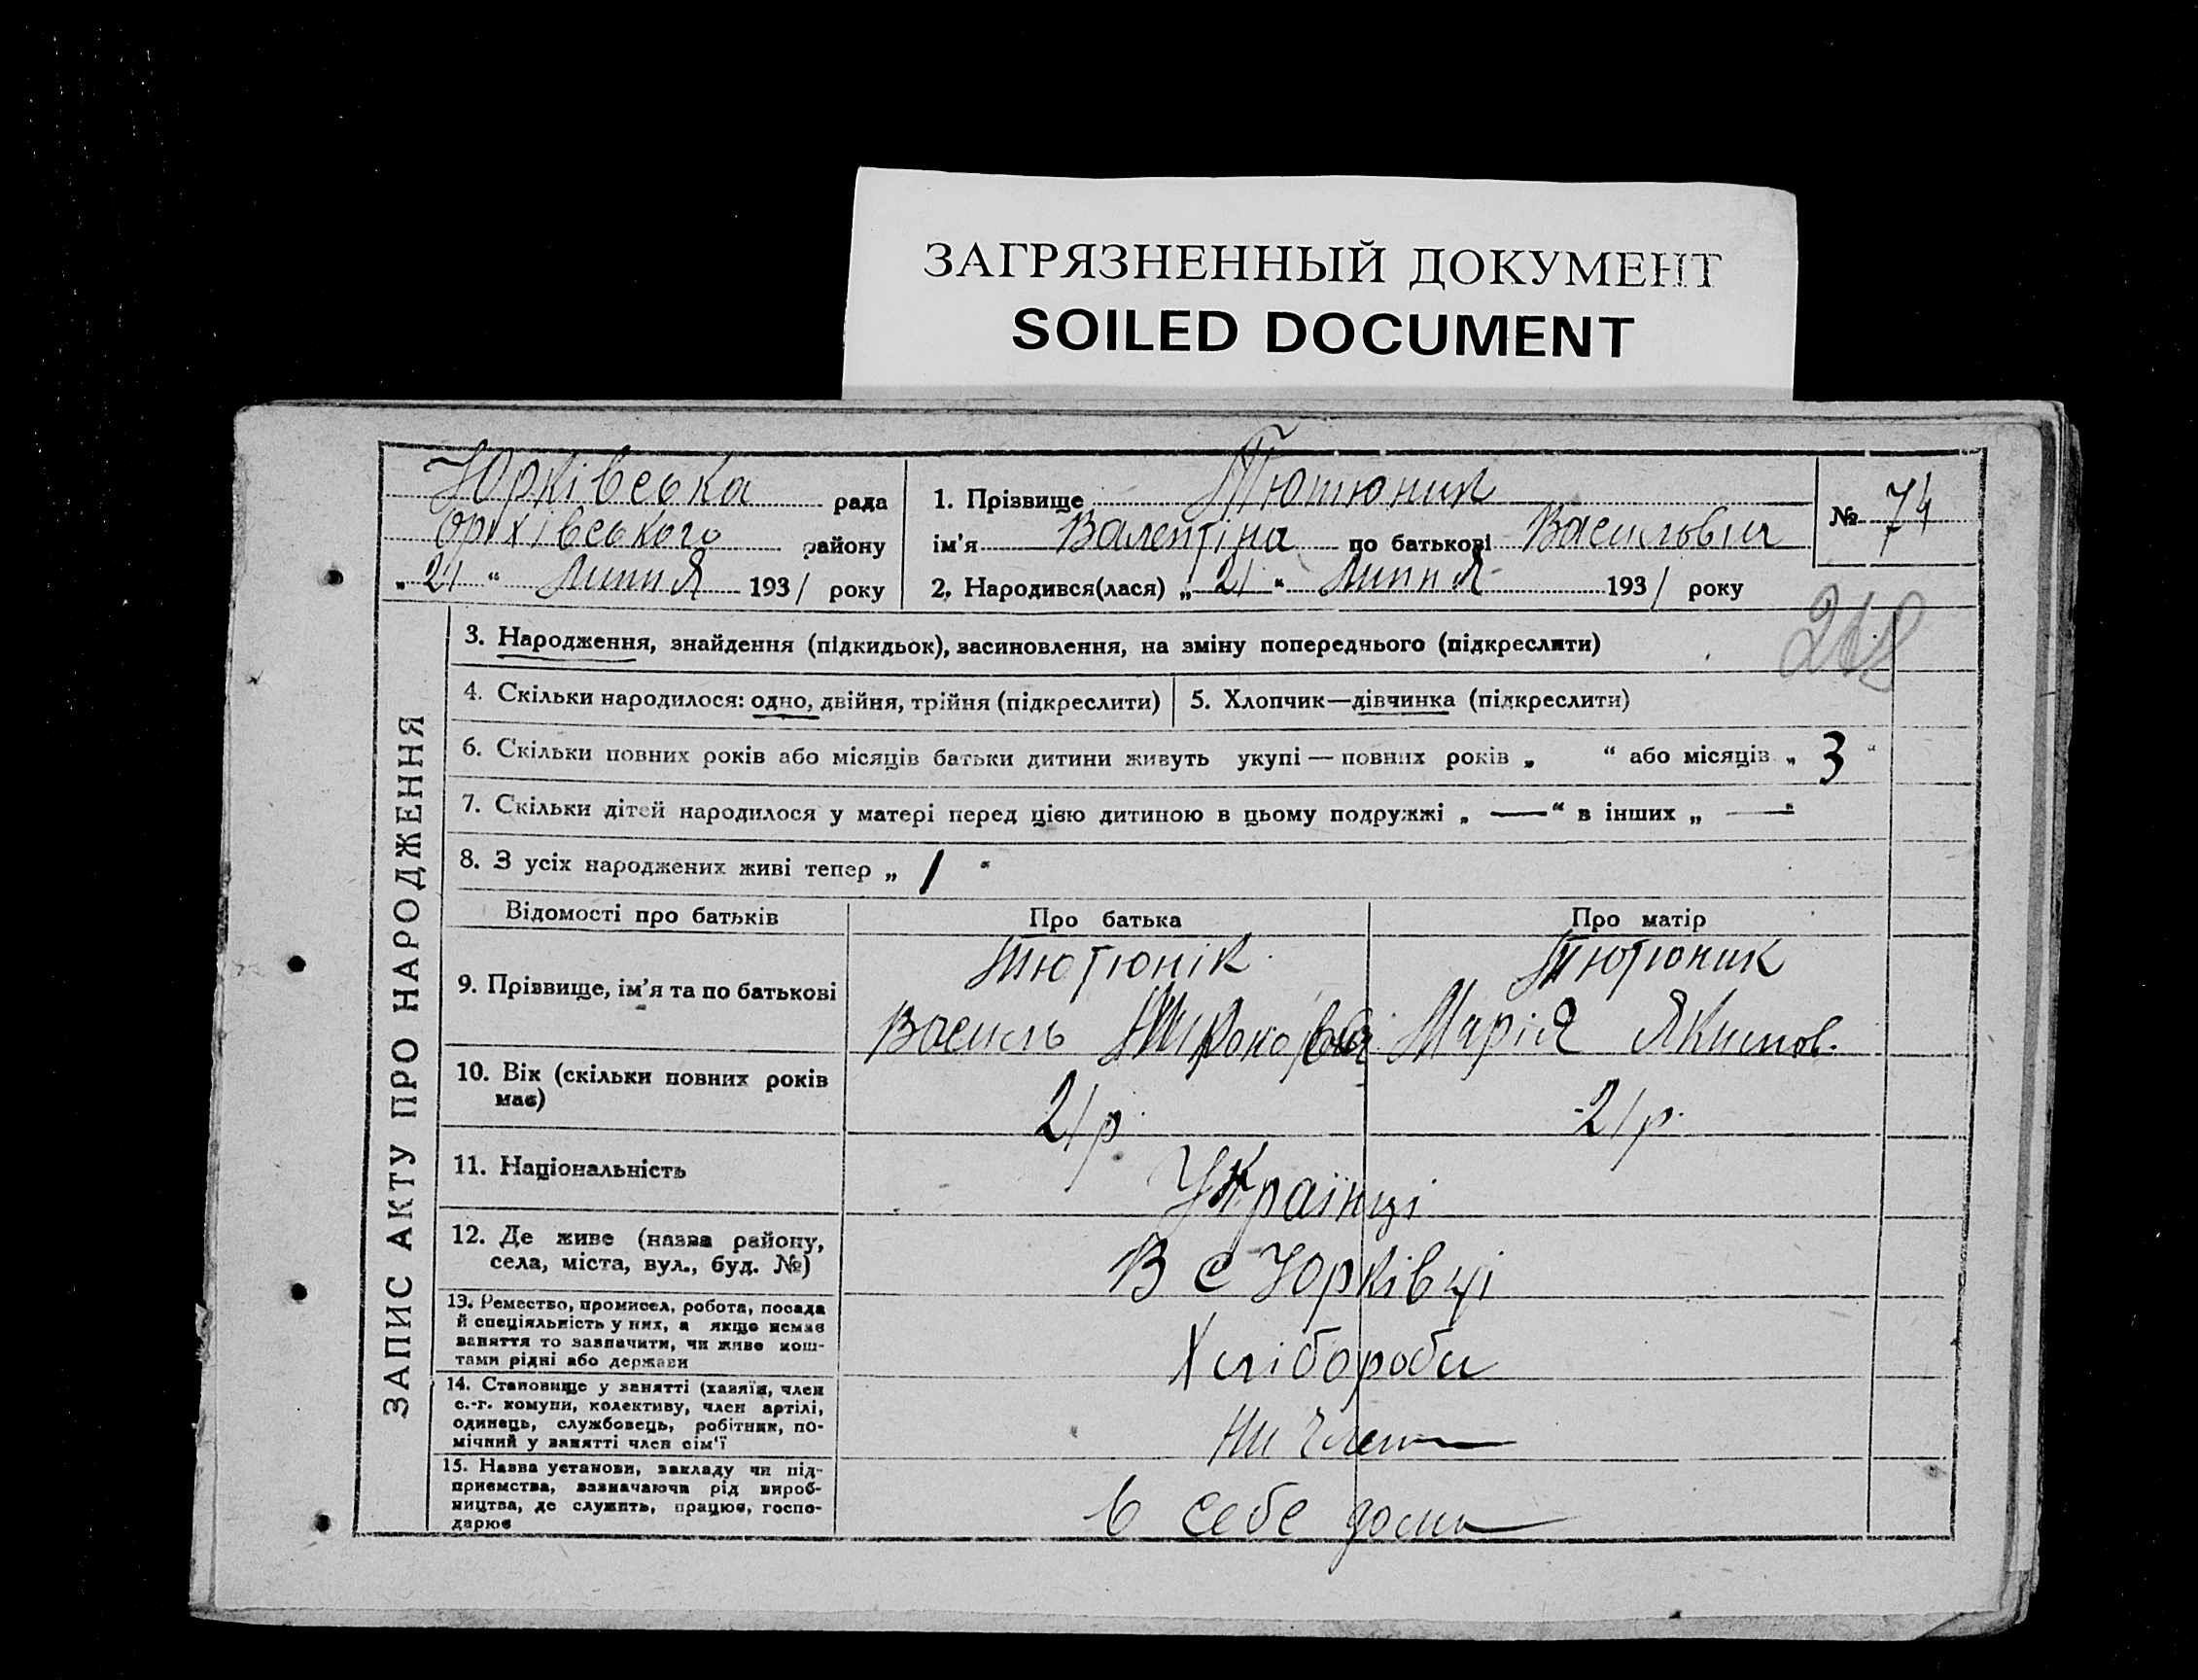 ЗАГРЯЗНЕННЫЙ ДОКУМЕНТ
SOILED DOCUMENT
Юрківська рада
Оріхівського району
„ 21 “ Липня 1931 року
1. Прізвище Тютюник
ім'я Валентіна по батькові Васильовна
2. Народився(лася) „ 21 “ Липня 1931 року
№ 74
ЗАПИС АКТУ ПРО НАРОДЖЕННЯ
3. Народження, знайдення (підкидьок), засиновлення, на зміну попереднього (підкреслити)
4. Скільки народилося: одно, двійня, трійня (підкреслити)
5. Хлопчик—дівчинка (підкреслити)
6. Скільки повних років або місяців батьки дитини живуть укупі — повних років „ “ або місяців „ 3 “
7. Скільки дітей народилося у матері перед цією дитиною в цьому подружжі „ — “ в інших „ — “
8. З усіх народжених живі тепер „ 1 “
Відомості про батьків
Про батька
Про матір
9. Прізвище, ім'я та по батькові
Тютюнік
Василь
Тютюник
Марія Якимов.
10. Вік (скільки повних років
має)
21 р.
21 р.
11. Національність
Українці
12. Де живе (назва району,
села, міста, вул., буд. №)
В с Юрківці
13. Ремество, промисел, робота, посада
й спеціяльність у них, а якщо немає
заняття то зазначити, чи живе кош-
тами рідні або держави
Хлібороби
14. Становище у занятті (хазяїн, член
с.-г. комуни, колективу, член артілі,
одинець, службовець, робітник, по-
мічний у занятті член сім'ї
Ни член
15. Назва установи, закладу чи під-
приємства, зазначаючи рід вироб-
ництва, де служить, працює, госпо-
дарює
в себе дома